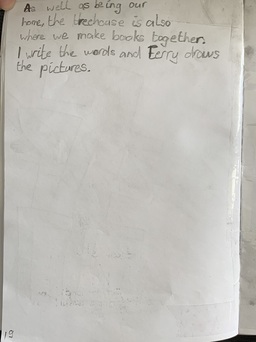 As well as being our
home, the treehouse is also
where we make books together.
I write the words and Terry draws
the pictures.